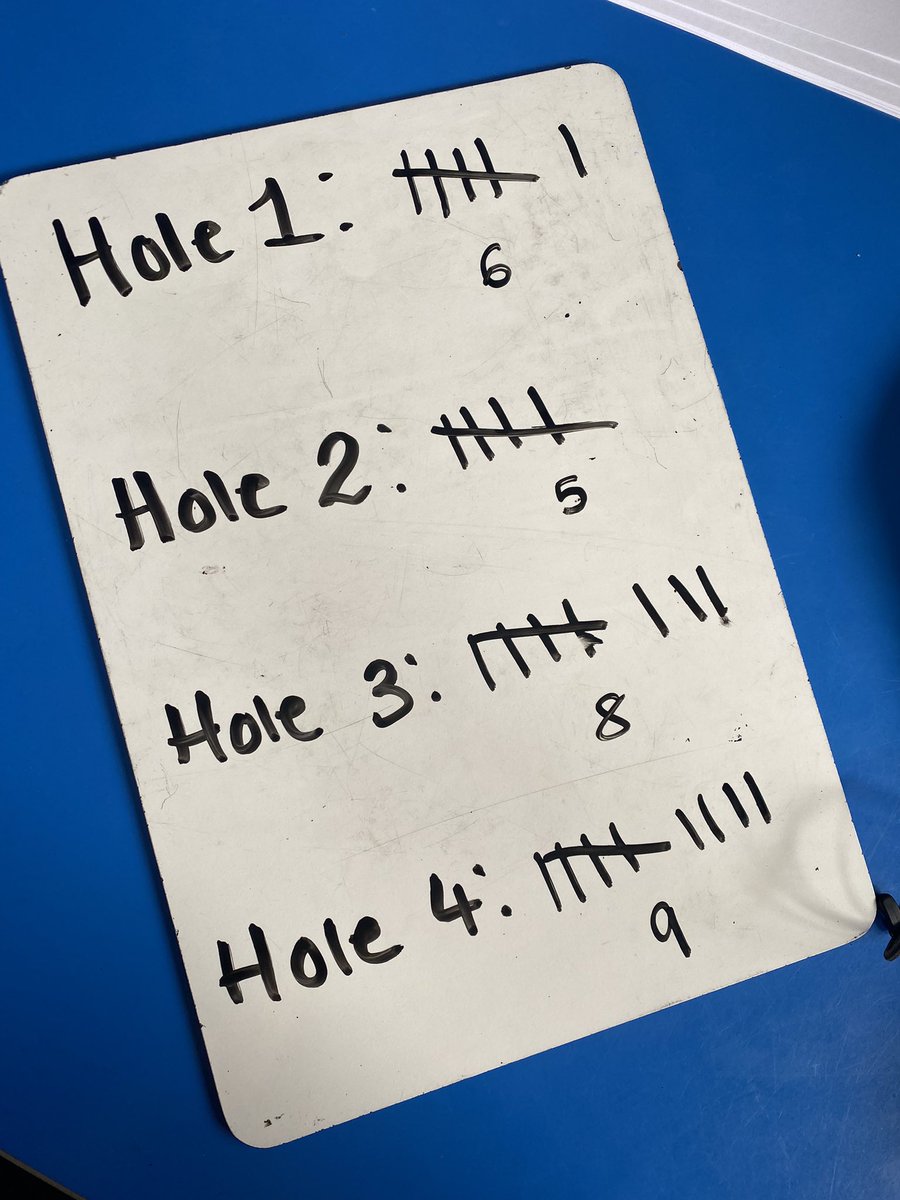 Hole 1:
6
Hole 2:
5
Hole 3:
8
Hole 4:
9